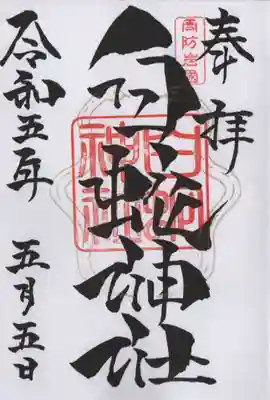 奉拝
周防岩国
白蛇神社
白蛇
神社
令和五年 五月五日